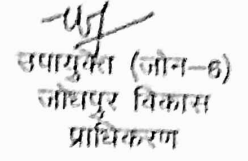 उपायुक्त (जोन–6)
जोधपुर विकास
प्राधिकरण